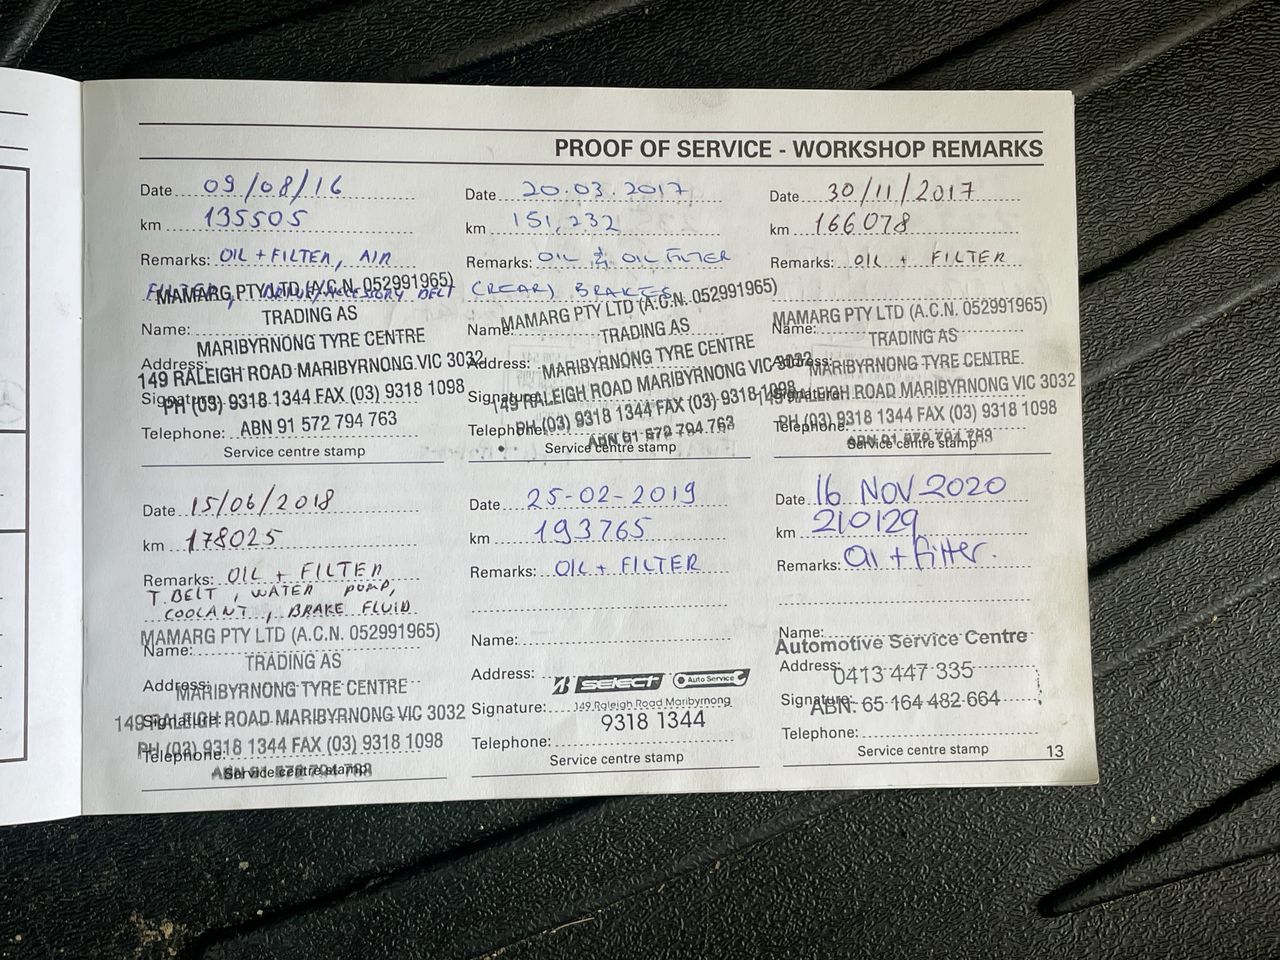 PROOF OF SERVICE - WORKSHOP REMARKS
Date 09/08/16
km 135505
Remarks: OIL + FILTER, AIR
FILTER, ACCESSORY BELT
MAMARG PTY LTD (A.C.N. 052991965)
TRADING AS
Name:
MARIBYRNONG TYRE CENTRE
Address:
149 RALEIGH ROAD MARIBYRNONG VIC 3032
Signature:
PH (03) 9318 1344 FAX (03) 9318 1098
Telephone: ABN 91 572 794 763
Service centre stamp
Date 20.03.2017
km 151,232
Remarks: OIL & OIL FILTER
(REAR) BRAKES
MAMARG PTY LTD (A.C.N. 052991965)
Name:
TRADING AS
MARIBYRNONG TYRE CENTRE
Address:
149 RALEIGH ROAD MARIBYRNONG VIC 3032
Signature:
PH (03) 9318 1344 FAX (03) 9318 1098
Telephone:
ABN 91 572 794 763
Service centre stamp
Date 30/11/2017
km 166078
Remarks: OIL + FILTER
MAMARG PTY LTD (A.C.N. 052991965)
Name:
TRADING AS
MARIBYRNONG TYRE CENTRE
Address:
149 RALEIGH ROAD MARIBYRNONG VIC 3032
Signature:
PH (03) 9318 1344 FAX (03) 9318 1098
Telephone:
ABN 91 572 794 763
Service centre stamp
Date 15/06/2018
km 178025
Remarks: OIL + FILTER
T. BELT, WATER PUMP,
COOLANT, BRAKE FLUID
MAMARG PTY LTD (A.C.N. 052991965)
Name:
TRADING AS
Address:
MARIBYRNONG TYRE CENTRE
Signature:
149 RALEIGH ROAD MARIBYRNONG VIC 3032
PH (03) 9318 1344 FAX (03) 9318 1098
Telephone:
Service centre stamp
Date 25-02-2019
km 193765
Remarks: OIL + FILTER
Name:
Address: B SELECT Auto Service
Signature: 149 Raleigh Road Maribyrnong
9318 1344
Telephone:
Service centre stamp
Date 16 NOV 2020
km 210129
Remarks: Oil + Filter.
Name:
Automotive Service Centre
Address: 0413 447 335
Signature: ABN: 65 164 482 664
Telephone:
Service centre stamp
13